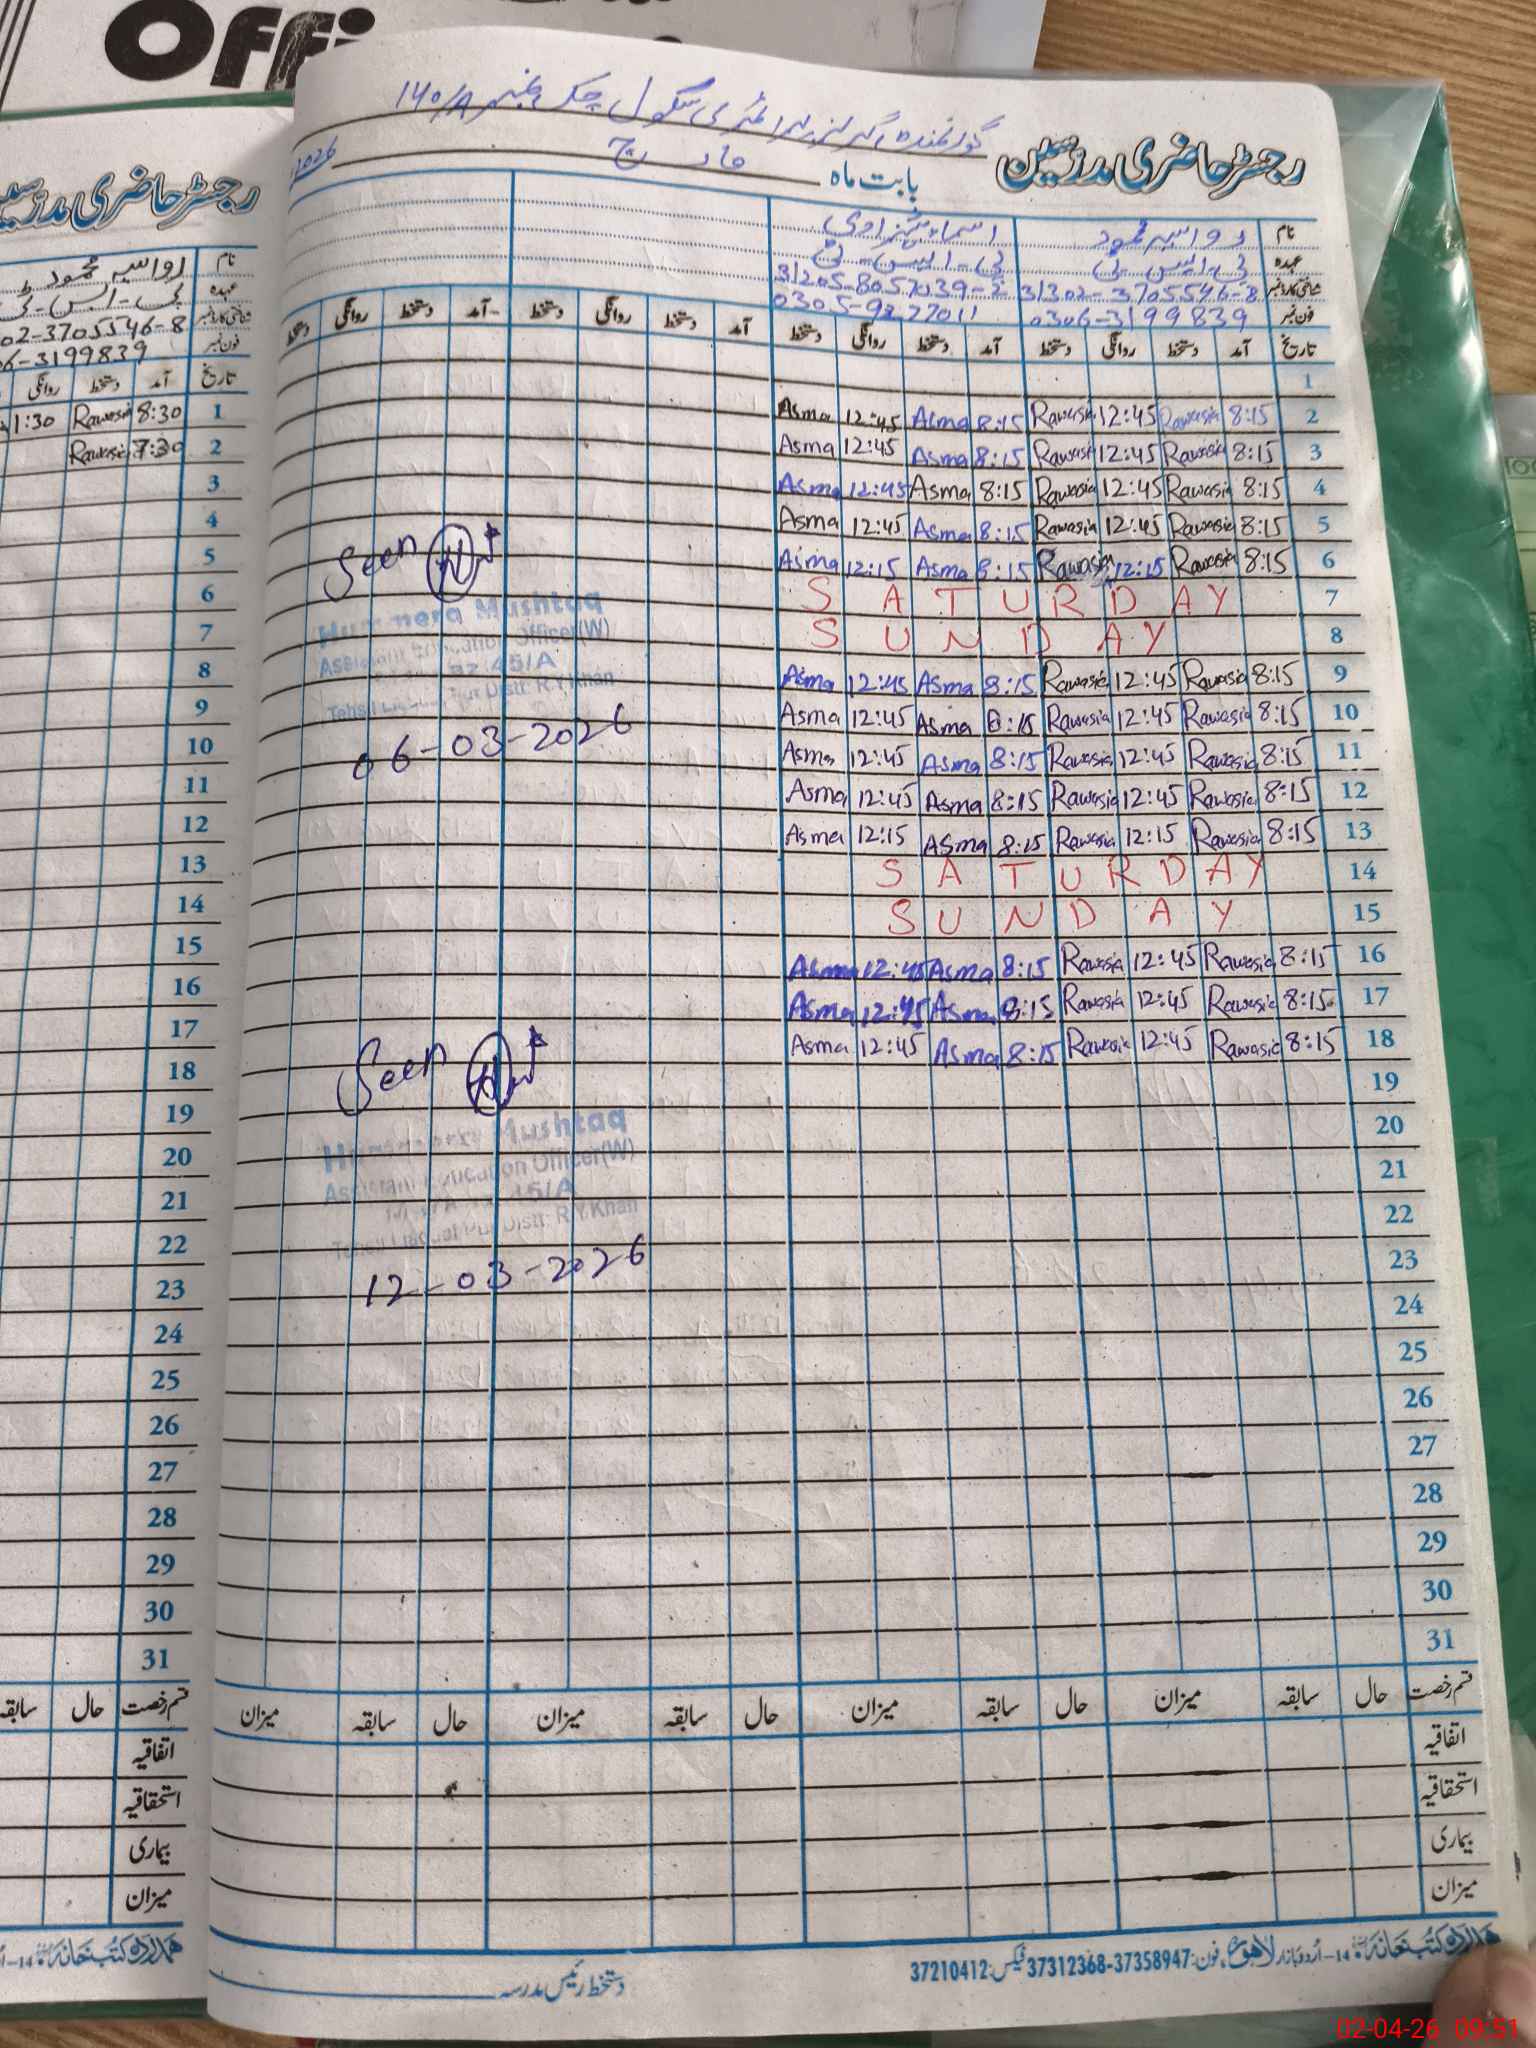 Offi
گورنمنٹ گرلز پرائمری سکول چک نمبر 140/A
رجسٹر حاضری مدرسین
بابت ماہ مارچ 2026
نام رواسیہ محمود اسماء شہزادی
عہدہ پی-ایس-ٹی پی-ایس-ٹی
شناختی کارڈ نمبر 31302-3705546-8 31205-8057039-2
فون نمبر 0306-3199839 0305-9227011
تاریخ آمد دستخط روانگی دستخط آمد دستخط روانگی دستخط آمد دستخط روانگی دستخط آمد دستخط روانگی دستخط
1
2 8:15 Rawasia 12:45 Rawasia 8:15 Asma 12:45 Asma
3 8:15 Rawasia 12:45 Rawasia 8:15 Asma 12:45 Asma
4 8:15 Rawasia 12:45 Rawasia 8:15 Asma 12:45 Asma
5 8:15 Rawasia 12:45 Rawasia 8:15 Asma 12:45 Asma
6 8:15 Rawasia 12:15 Rawasia 8:15 Asma 12:15 Asma
7 SATURDAY
8 SUNDAY
9 8:15 Rawasia 12:45 Rawasia 8:15 Asma 12:45 Asma
10 8:15 Rawasia 12:45 Rawasia 8:15 Asma 12:45 Asma
11 8:15 Rawasia 12:45 Rawasia 8:15 Asma 12:45 Asma
12 8:15 Rawasia 12:45 Rawasia 8:15 Asma 12:45 Asma
13 8:15 Rawasia 12:15 Rawasia 8:15 Asma 12:15 Asma
14 SATURDAY
15 SUNDAY
16 8:15 Rawasia 12:45 Rawasia 8:15 Asma 12:45 Asma
17 8:15 Rawasia 12:45 Rawasia 8:15 Asma 12:45 Asma
18 8:15 Rawasia 12:45 Rawasia 8:15 Asma 12:45 Asma
19
20
21
22
23
24
25
26
27
28
29
30
31
Seen
Humera Mushtaq
Assistant Education Officer(W)
45/A
Tehsil Liaquat Pur Distt: R.Y.Khan
06-03-2026
Seen
Humera Mushtaq
Assistant Education Officer(W)
45/A
Tehsil Liaquat Pur Distt: R.Y.Khan
12-03-2026
قسم رخصت حال سابقہ میزان حال سابقہ میزان حال سابقہ میزان حال سابقہ میزان
اتفاقیہ
استحقاقیہ
بیماری
میزان
ہمدرد کتب خانہ 14-اردو بازار لاہور، فون: 37358947-37312368 فیکس: 37210412
دستخط رئیس مدرسہ
رجسٹر حاضری مدرسین
نام رواسیہ محمود
عہدہ پی-ایس-ٹی
شناختی کارڈ نمبر 02-3705546-8
فون نمبر 06-3199839
تاریخ آمد دستخط روانگی
1 8:30 Rawasia 1:30
2 7:30 Rawasia
3
4
5
6
7
8
9
10
11
12
13
14
15
16
17
18
19
20
21
22
23
24
25
26
27
28
29
30
31
قسم رخصت حال سابقہ
اتفاقیہ
استحقاقیہ
بیماری
میزان
ہمدرد کتب خانہ 14-
02-04-26 09:51